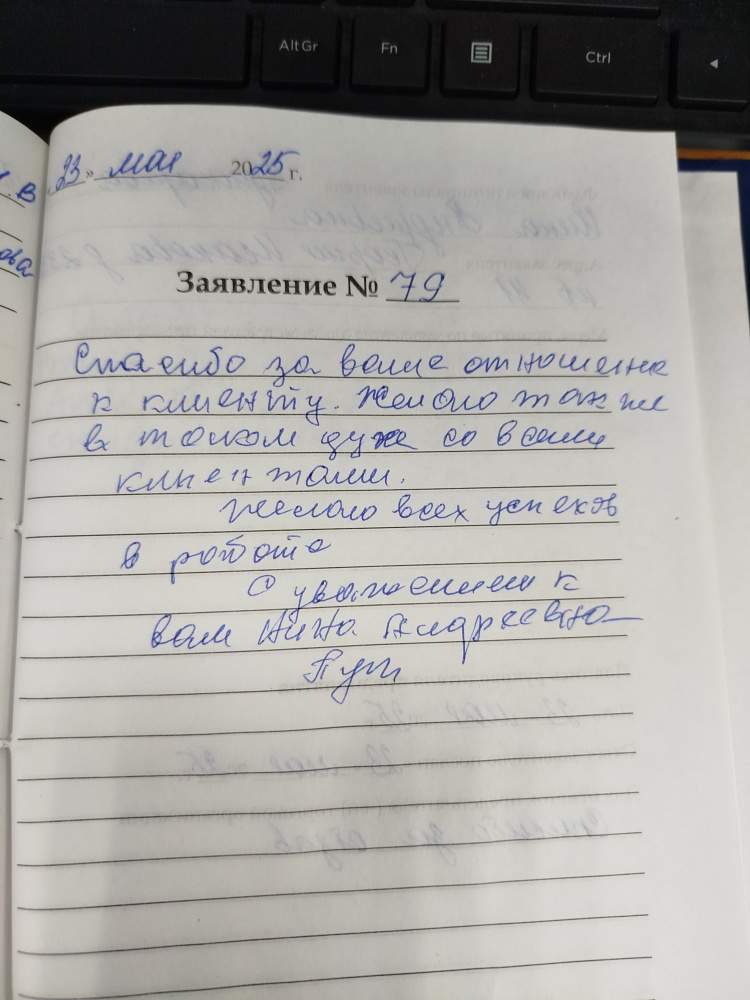 Alt Gr
Fn
Ctrl
в
ова
23» мая 2025 г.
Заявление № 79
Спасибо за ваше отношение
к клиенту. Желаю так же
в таком духе со всеми
клиентами.
Желаю всех успехов
в работе
С уважением к
вам Нина Андреевна